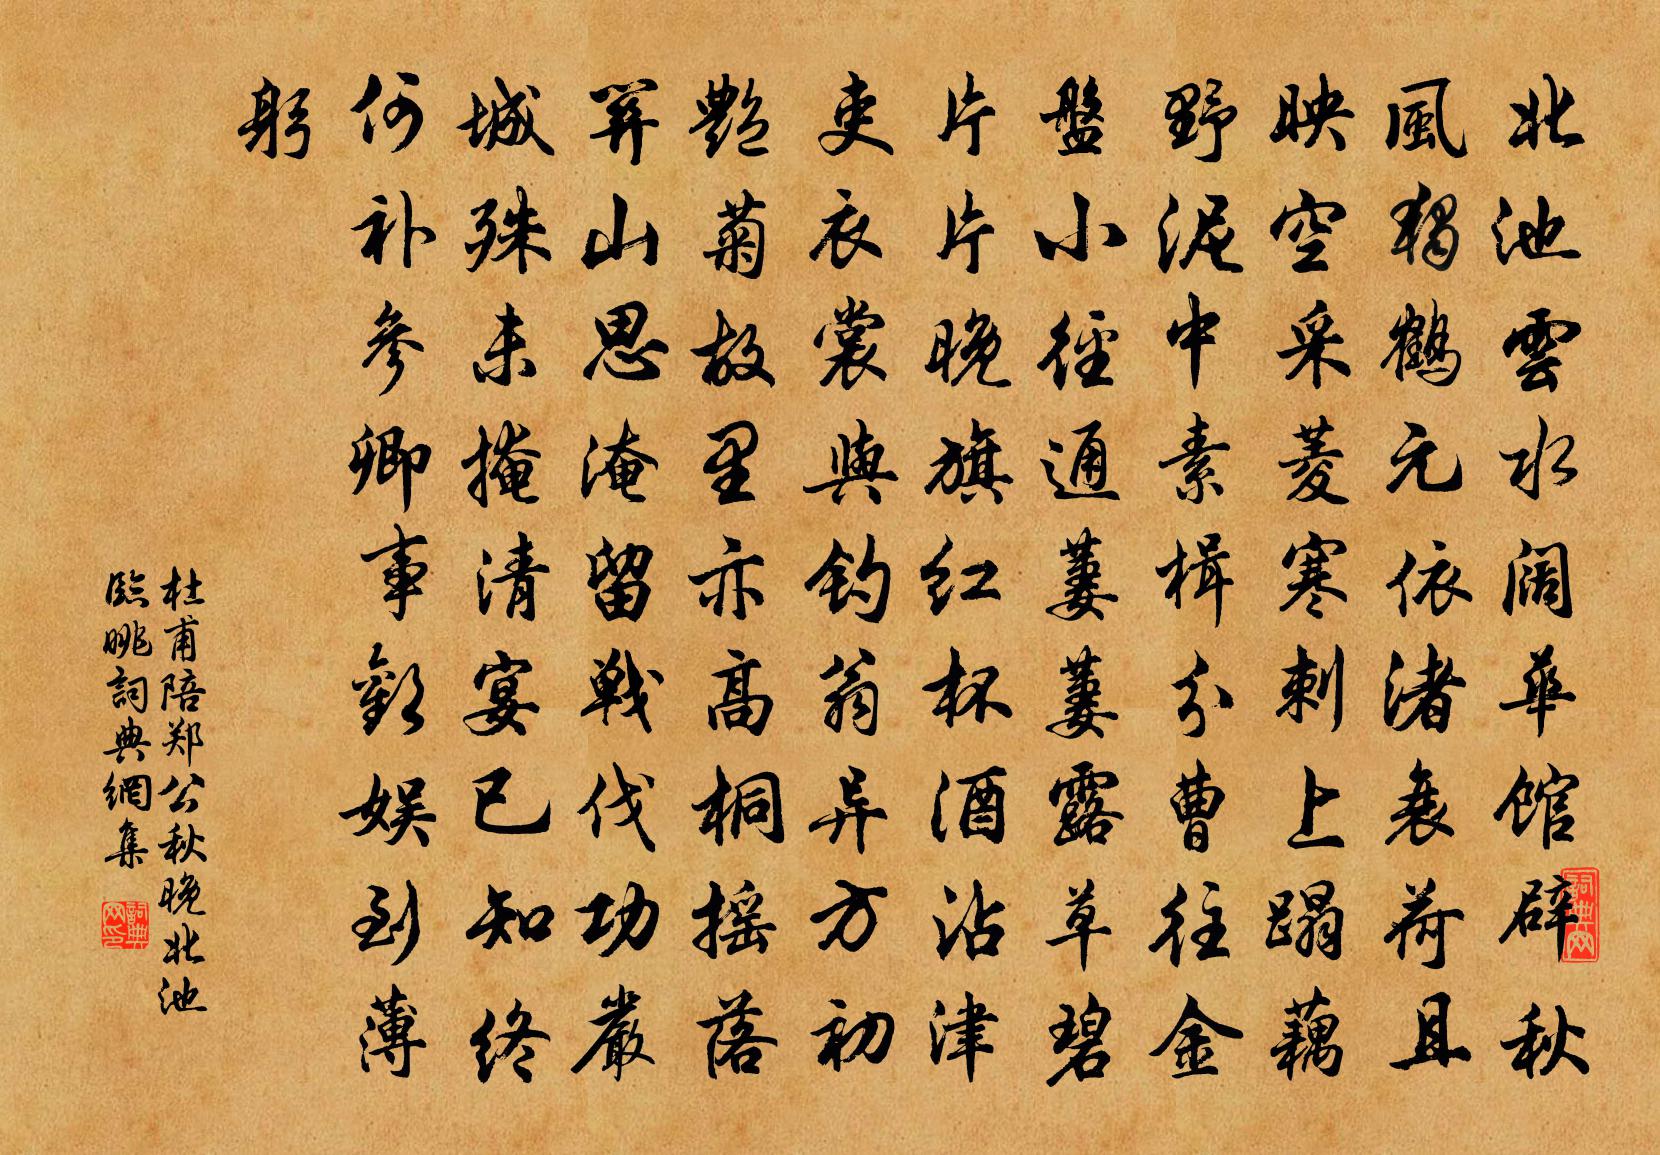 北池雲水阔華馆辟秋
風獨鶴元依渚衰荷且
映空采菱寒刺上蹋藕
野泥中素楫分曹往金
盤小徑通萋萋露草碧
片片晚旗红杯酒沾津
吏衣裳與钓翁异方初
艷菊故里亦高桐摇落
關山思淹留戰伐功嚴
城殊未掩清宴已知终
何补參卿事歡娱到薄
躬
杜甫陪郑公秋晚北池
臨眺詞典網集
詞典网
詞典网印